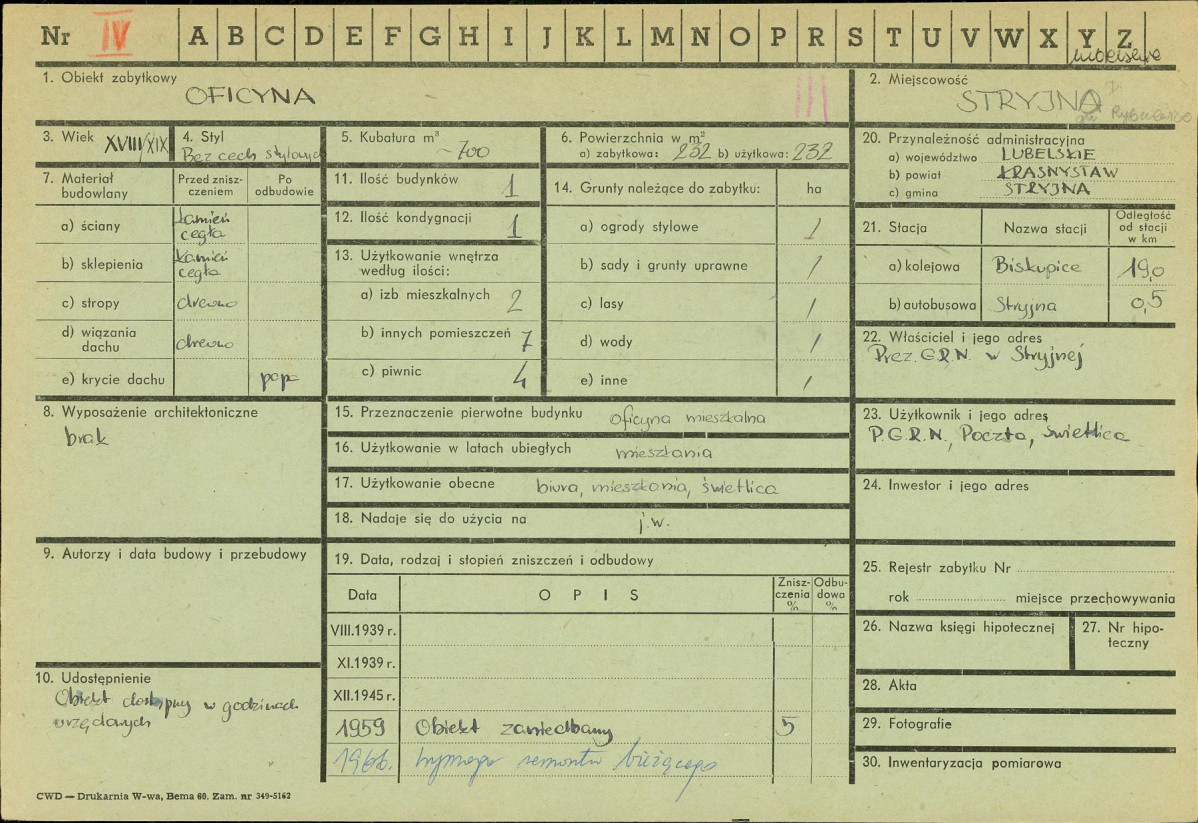 Nr IV A B C D E F G H I J K L M N O P R S T U V W X Y Z
lubelskie
1. Obiekt zabytkowy
OFICYNA
III
2. Miejscowość
STRYJNA
3. Wiek XVIII/XIX
4. Styl
Bez cech stylowych
5. Kubatura m³
~700
6. Powierzchnia w m²
a) zabytkowa: 232 b) użytkowa: 232
20. Przynależność administracyjna
a) województwo LUBELSKIE
b) powiat KRASNYSTAW
c) gmina STRYJNA
7. Materiał budowlany
Przed znisz-
czeniem
Po
odbudowie
a) ściany kamień
cegła
b) sklepienia kamień
cegła
c) stropy drewno
d) wiązania
dachu drewno
e) krycie dachu papa
11. Ilość budynków 1
12. Ilość kondygnacji 1
13. Użytkowanie wnętrza
według ilości:
a) izb mieszkalnych 2
b) innych pomieszczeń 7
c) piwnic 4
14. Grunty należące do zabytku: ha
a) ogrody stylowe /
b) sady i grunty uprawne /
c) lasy /
d) wody /
e) inne /
21. Stacja Nazwa stacji Odległość
od stacji
w km
a) kolejowa Biskupice 19,0
b) autobusowa Stryjna 0,5
22. Właściciel i jego adres
Prez. G.R.N. w Stryjnej
8. Wyposażenie architektoniczne
brak
15. Przeznaczenie pierwotne budynku oficyna mieszkalna
16. Użytkowanie w latach ubiegłych mieszkania
17. Użytkowanie obecne biura, mieszkania, świetlica
18. Nadaje się do użycia na j.w.
23. Użytkownik i jego adres
P.G.R.N., Poczta, świetlica
24. Inwestor i jego adres
9. Autorzy i data budowy i przebudowy
19. Data, rodzaj i stopień zniszczeń i odbudowy
Data OPIS Znisz-
czenia
%
Odbu-
dowa
%
VIII.1939 r.
XI.1939 r.
XII.1945 r.
1959 Obiekt zaniedbany 5
1966. Wymaga remontu bieżącego
25. Rejestr zabytku Nr
rok miejsce przechowywania
26. Nazwa księgi hipotecznej
27. Nr hipo-
teczny
10. Udostępnienie
Obiekt dostępny w godzinach
urzędowych
28. Akta
29. Fotografie
30. Inwentaryzacja pomiarowa
CWD — Drukarnia W-wa, Bema 60. Zam. nr 349-5162